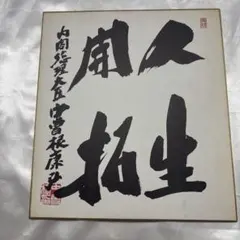 人生
開拓
内閣総理大臣 中曽根康弘